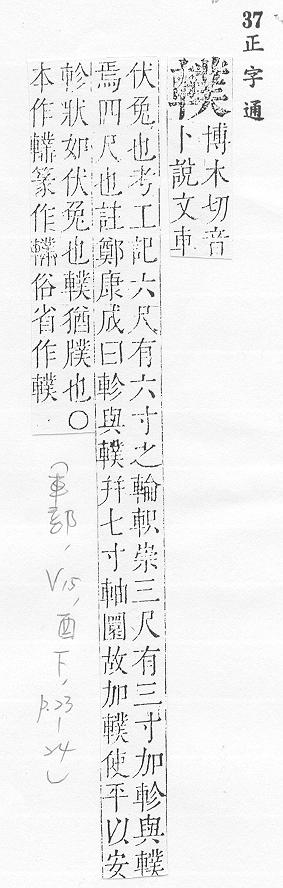 37 正字通
轐
博木切音
卜說文車
伏兔也考工記六尺有六寸之輪軹崇三尺有三寸加軫與轐
焉四尺也註鄭康成曰軫與轐幷七寸軸圍故加轐使平以安
軫狀如伏兔也轐猶也〇
本作篆作俗省作轐
(車部, V15, 酉下, p.23-24)